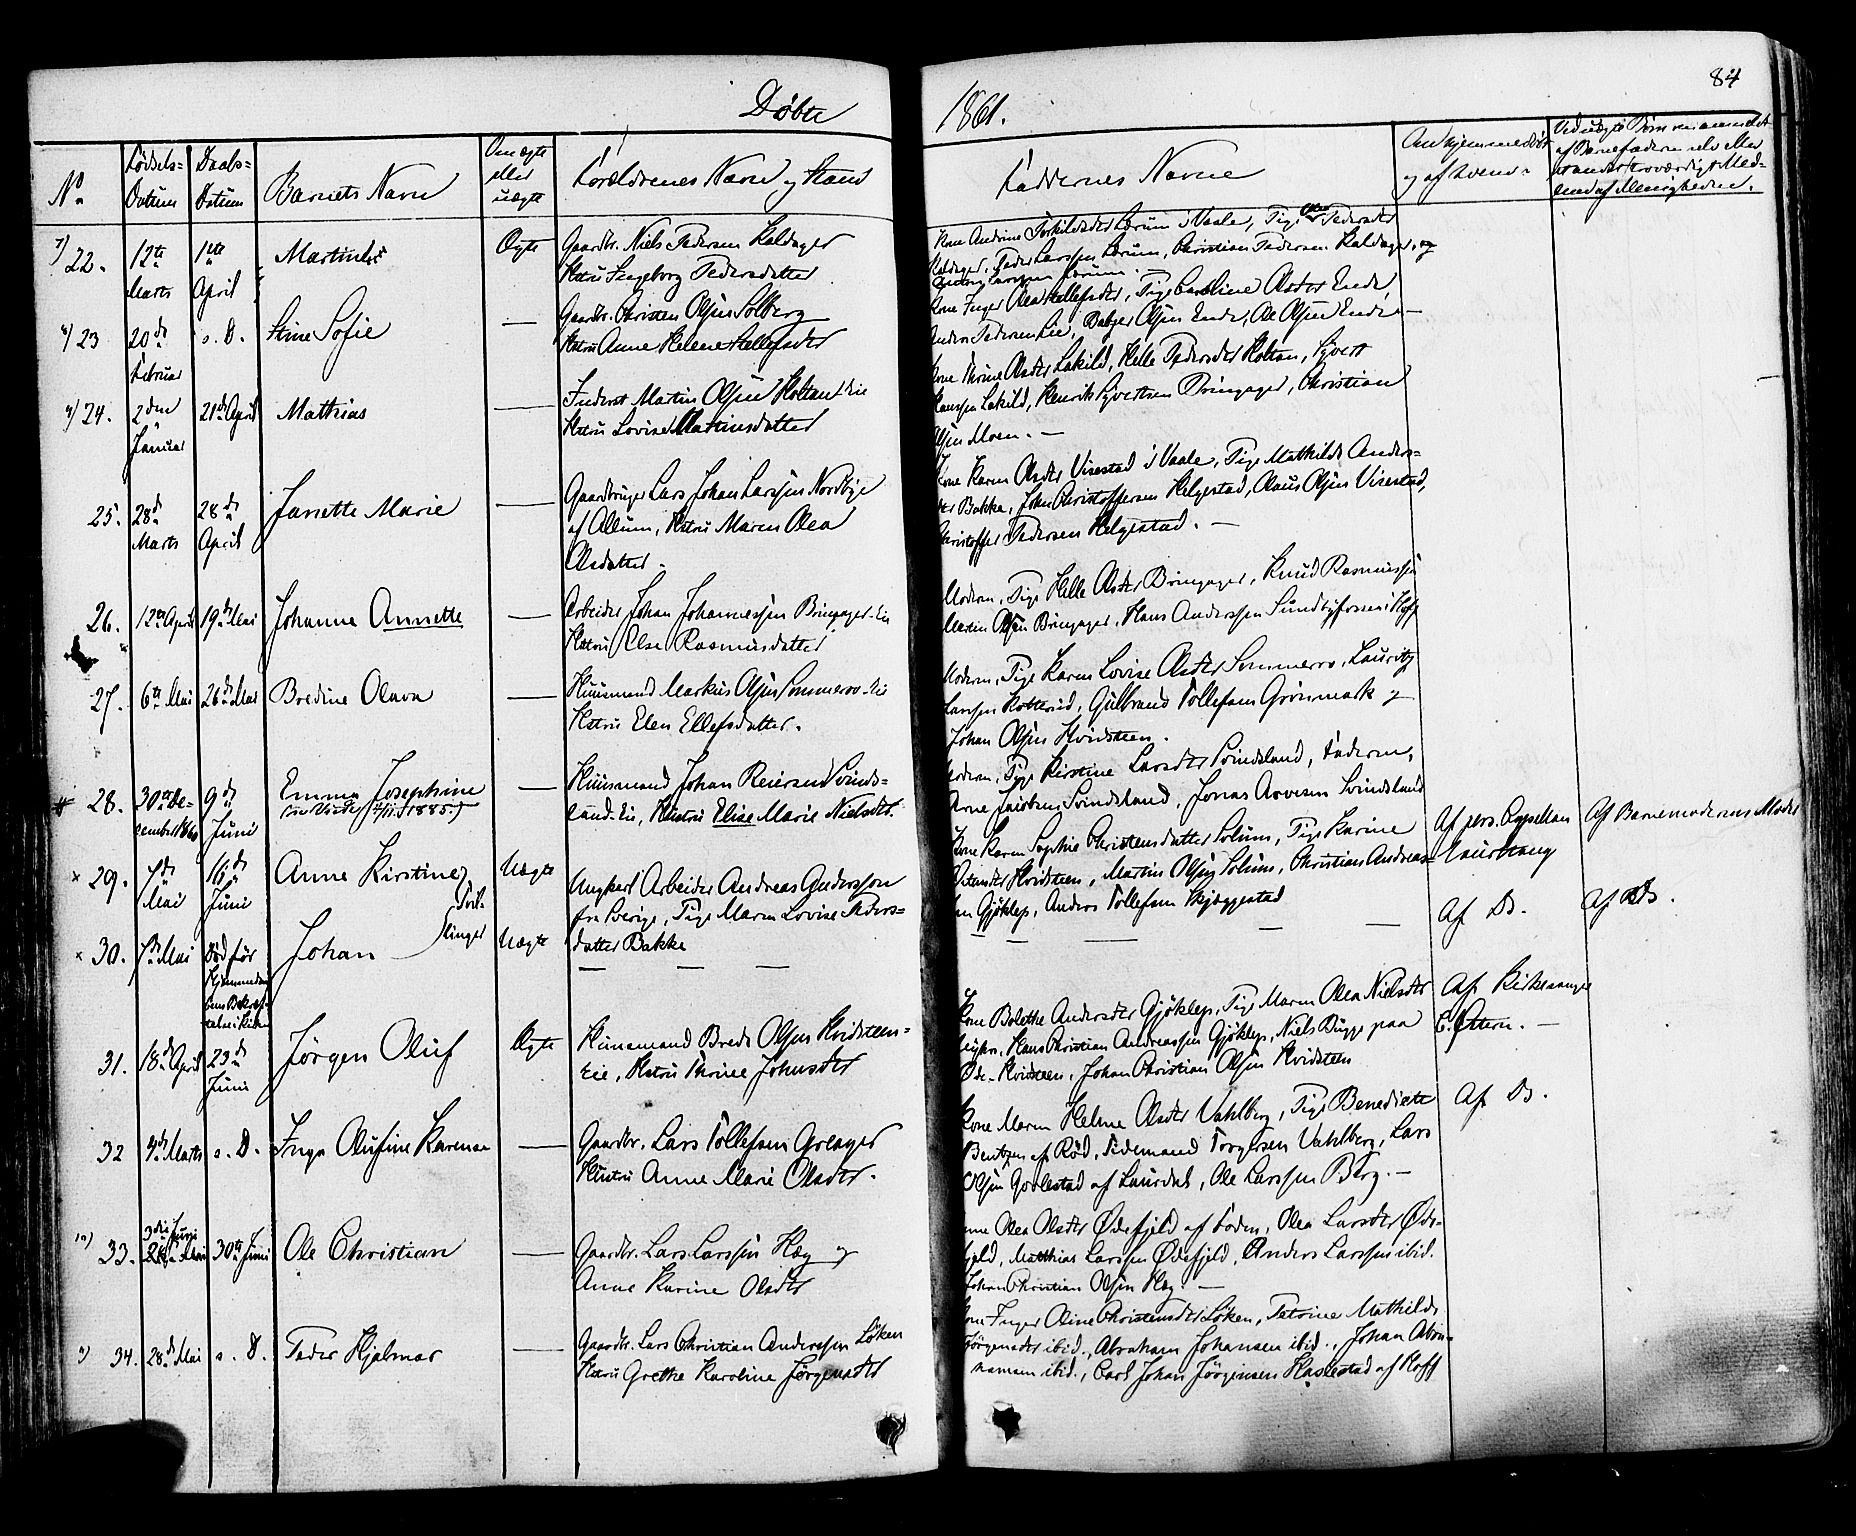 Døbte
1861.
84
No
Fødsels-
Datum
Daabs-
Datum
Barnets Navn
Om ægte
eller
uægte
Forældrenes Navn og Stand
Faddernes Navne
Om hjemmedøbt
og af hvem
22.
12te
Marts
1ste
April
Ægte
Gaardbr. Niels Pedersen Kaldager
Hstru Ingeborg Pedersdatter
Kone Andrine Lørum i Vaale, Pige Pedersdtr
Kaldager, Peder Larssen Lørum, Christian Pedersen Kaldager, og
Larssen Lørum. —
23
20de
Februar
s. D.
Stine Sofie
—
Gaardbr. Christen Olsen Solberg
Hstru Anne Helene
Kone Inger Olea, Pige Caroline Olsdtr Ende,
Anders Pedersen Lie, Olsen Ende, Ole Olsen Ende. —
24.
2den
Januar
21de April
Mathias
—
Inderst Martin Olsen Holtan Eie
Hstru Lovise Martinsdatter
Kone Thrine Olsdtr Lakild, Helle Pedersdtr Holtan, Syvert
Hanssen Lakild, Henrik Syvertsen Bringager, Christian
Olsen Moen. —
25.
28de
Marts
28de
April
Janette Marie
—
Gaardbruger Lars Johan Larssen Nordbye
af Allum, Hstru Maren Olea
Olsdatter.
Kone Karen Olsdtr Virestad i Vaale, Pige Mathilde Anders-
dtr Bakke, Johan Christoffersen Helgestad, Olaus Olsen Virestad,
Christoffer Pedersen Helgestad. —
26.
12te April
19de Mai
Johanne Annette
—
Arbeider Johan Johannessen Bringager-Eie
Hstru Else Rasmusdatter
Moderen, Pige Helle Olsdtr Bringager, Knud Rasmussen
Martin Olsen Bringager, Hans Anderssen Sundbyfossen i Hoff
27.
6te Mai
26de Mai
Bredine Olava
—
Huusmand Markus Olsen Sommero-Eie
Hstru Elen Ellefsdatter.
Moderen, Pige Karen Lovise Olsdtr Sommero, Lauritz
Larssen Kotterud, Gulbrand Tollefsen Grønmark og
Johan Olsen Hvidsteen.
28.
30te De-
cember 1860
9de
Juni
Emma Josephine
—
Huusmand Johan Reiersen Svinds-
land-Eie, Hustru Elise Marie Nielsdtr.
Moderen, Pige Kirstine Larsdtr Svindsland, Faderen,
Arne Jacobsen Svindsland, Jonas Arvesen Svindsland
29.
7de
Mai
16de
Juni
Anne Kirstine
Tvil-
linger
Uægte
Ungkarl Arbeider Andreas Andersson
fra Sverige, Pige Maren Lovise Peders-
datter Bakke
Kone Karen Sophie Christensdatter Solum, Pige Karine
Hvidsteen, Martin Olsen Solum, Christian Andreas-
sen Gjøklep, Anders Tollefsen Skjæggestad
Af pers. Capellan
Af Barnemoderens Moder
30.
7de Mai
Død før
Johan
Uægte
— — —
— — — — —
Af Do.
Af Do.
31.
18de April
23de
Juni
Jørgen Oluf
Ægte
Huusmand Brede Olsen Hvidsteen-
Eie, Hstru Thrine Johnsdtr
Kone Bolethe Andersdtr Gjøklep, Pige Maren Olea Nielsdtr
Hans Christian Andreassen Gjøklep, Niels Bugge paa
Øde-Hvidsteen, Johan Christian Olsen Hvidsteen
Af Kirkesanger
32
4de Marts
s. D.
Inga Olufine Karense
—
Gaardbr. Lars Tollefsen Greager
Hustru Anne Marie Olsdtr.
Kone Maren Helene Olsdtr Vahlberg, Pige Benedicte
Bentzen af Rød, Tidemand Torgersen Vahlberg, Lars
Olsen af Laurdal, Ole Larssen Berg. —
Af Do.
33.
3die Juni
30te Juni
Ole Christian
—
Gaardbr. Lars Larssen Hæg og
Anne Karine Olsdtr
Olea Olsdtr Ødefjeld af Foden, Olea Larsdtr Øde-
fjeld, Matthias Larssen Ødefjeld, Anders Larssen ibid.
Johan Christian Olsen Hæg. —
34.
28de Mai
s. D.
Peder Hjalmar
—
Gaardbr. Lars Christian Anderssen Løken
Hstru Grethe Karoline Jørgensdtr
Kone Inger Oline Christensdtr Løken, Petrine Mathilde
Jørgensdtr ibid., Abraham Johansen ibid., Johan Abra-
hamsen ibid., Carl Johan Jørgensen Haslestad af Hoff